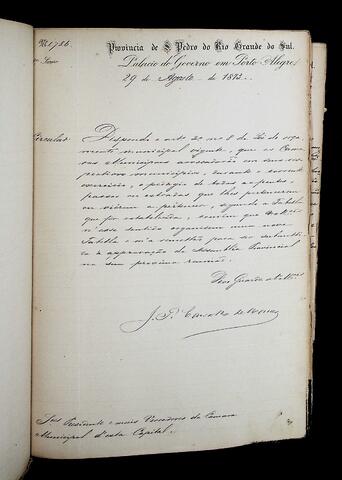 N. 1786
Provincia de S. Pedro do Rio Grande do Sul.
Palacio do Governo em Porto Alegre,
29 de Agosto de 1873.
Circular
Dispondo o art. 2º nº 8 da Lei de orça-
mento municipal vigente, que as Cama-
ras Municipaes arrecadarão em seus res-
pectivos municipios, durante o corrente
exercicio, o pedagio de todas as pontes,
passos ou estradas que lhes pertencerem
ou vierem a pertencer, segundo a tabella
que for estabelecida, convem que
n'esse sentido organisem uma nova
tabella e m'a remettão para ser submetti-
da á approvação da Assembléa Provincial
na sua proxima reunião.
Deos Guarde a
J. P. Carvalho de Moraes
Snrs. Presidente e mais Vereadores da Camara
Municipal d'esta Capital.